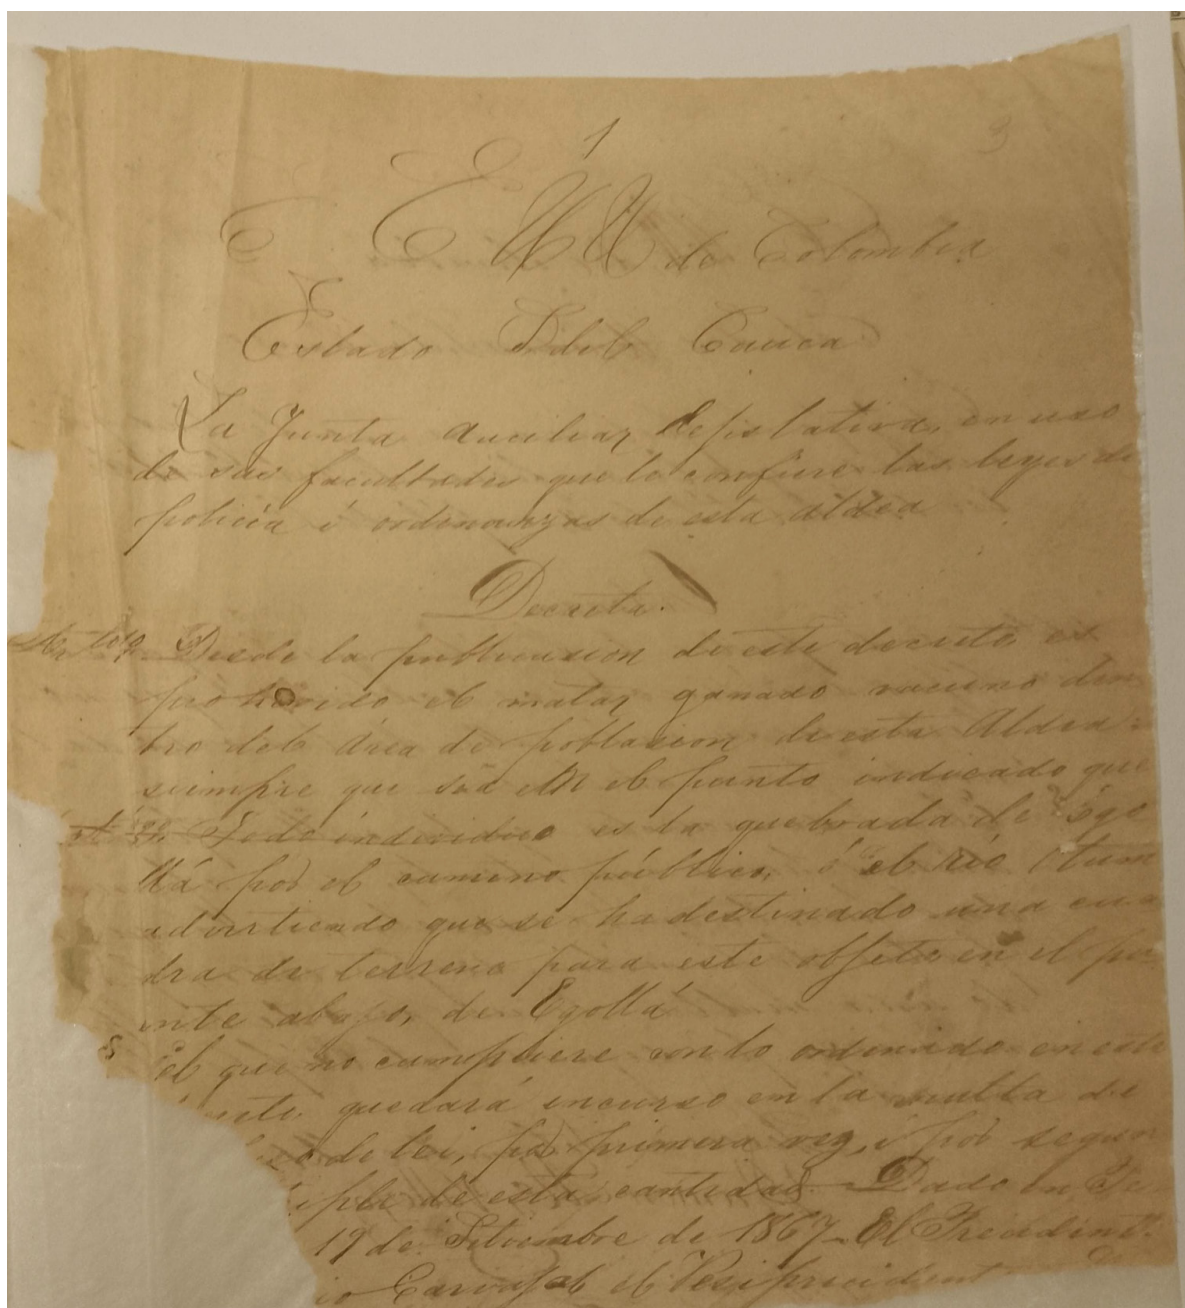 1 3
E E U U de Colombia
Estado S. del Cauca
La Junta Auciliar Lejislativa, en uso
de sus facultades que le confiere las leyes de
policía i ordenanzas de esta aldea
Decreta.
Art 1º. Desde la publicasion de este decreto es
prohivido el matar ganado vacuno den
tro del área de poblasion de esta Aldea
siempre que sea en el punto indicado que
Art 2º. Todo individuo es la quebrada de Ego
llá por el camino público, ó el río Otun
advirtiendo que se ha destinado una cua
dra de terreno para este objeto en el pu
ente abajo, de Egollá
El que no cumpliere con lo ordenado en este
quedará incurso en la multa de
de lei, por primera vez, i por segun
de esta cantidad. Dado en Pe
19 de Setiembre de 1867. El Presidente.
Carvajal el Vesipresidente